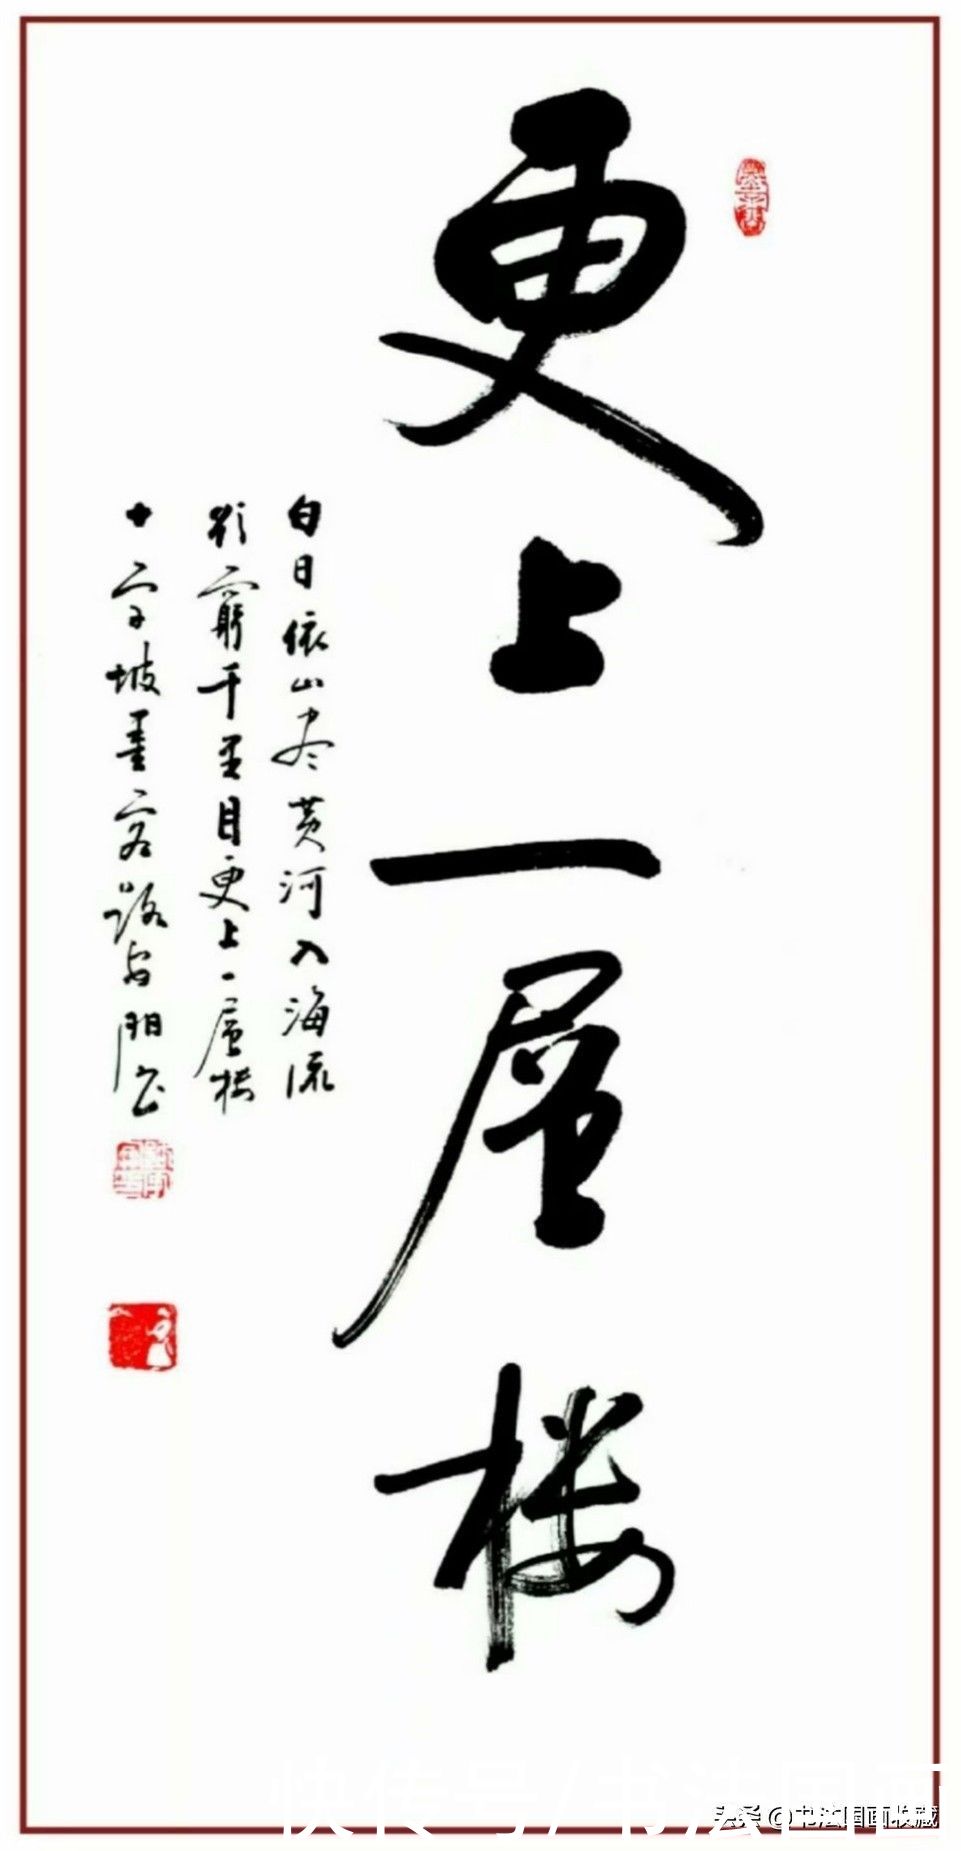 更上一层楼
白日依山尽黄河入海流
欲窮千里目更上一层楼
十字坡墨客路朋书
快传号/书法国画
头条 @书法国画收藏